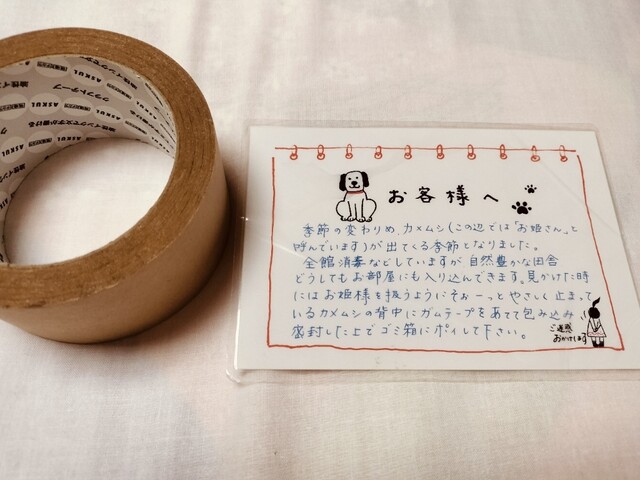 お客様へ
季節の変わりめ、カメムシ(この辺では「お姫さん」と
呼んでいます)が出てくる季節となりました。
全館消毒などしていますが自然豊かな田舎
どうしてもお部屋にも入り込んできます。見かけた時
にはお姫様を扱うようにそぉーっとやさしく止まって
いるカメムシの背中にガムテープをあてて包み込み
密封した上でゴミ箱にポイして下さい。
ご迷惑
おかけします
ASKUL
クラフトテープ
油性インクで文字が書ける